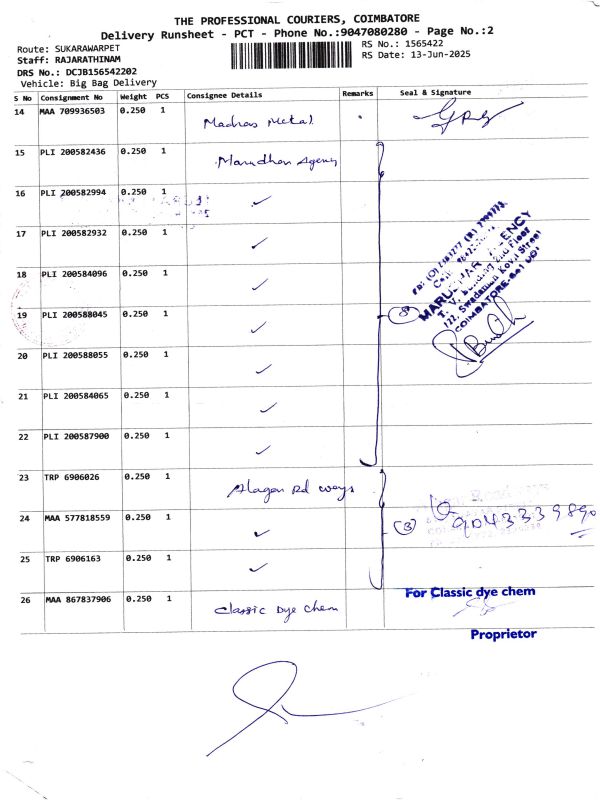 THE PROFESSIONAL COURIERS, COIMBATORE
Delivery Runsheet - PCT - Phone No.:9047080280 - Page No.:2
Route: SUKARAWARPET
RS No.: 1565422
Staff: RAJARATHINAM
RS Date: 13-Jun-2025
DRS No.: DCJB156542202
Vehicle: Big Bag Delivery
S No Consignment No Weight PCS Consignee Details Remarks Seal & Signature
14 MAA 709936503 0.250 1 Madras Metal
15 PLI 200582436 0.250 1 Marudhar Agency
16 PLI 200582994 0.250 1 ✓
17 PLI 200582932 0.250 1 ✓
18 PLI 200584096 0.250 1 ✓
19 PLI 200588045 0.250 1 ✓
20 PLI 200588055 0.250 1 ✓
21 PLI 200584065 0.250 1 ✓
22 PLI 200587900 0.250 1 ✓
MARUDHAR AGENCY
T. V. Building 2nd Floor
122, Swadaman Kovil Street
COIMBATORE-641 001
23 TRP 6906026 0.250 1 Alagar Rd ways
24 MAA 577818559 0.250 1 ✓ (3) 9043339890
25 TRP 6906163 0.250 1 ✓
26 MAA 867837906 0.250 1 Classic Dye Chem
For Classic dye chem
Proprietor